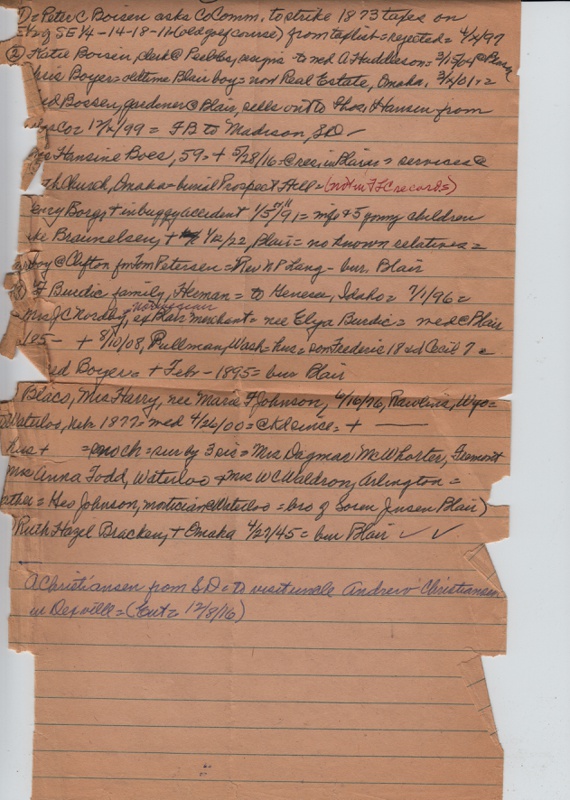 = Peter C Boisen asks CoComm. to strike 1873 taxes on
E½ of SE¼-14-18-11 (old golf course) from taxlist = rejected = 4/2/97
② Katie Boisen, clerk @ resigns to wed A Huddleson = 3/15/04 @
Boyer = oldtime Blair boy = now Real Estate, Omaha, 3/2/01 = 2
Bossen, gardener @ Blair, sells out to Thos. Hansen from
Co = 12/2/99 = FB to Madison, SD ✓
Hansine Boes, 59 = + 5/28/16 @ res in Blair = services @
Church, Omaha = burial Prospect Hill = (not in FC records)
Henry Borgs + in buggy accident 1/5/91 = wife & 5 young children
Braunelsen, + 1/2/22, Blair = no known relatives =
@ Clifton fm Tom Petersen = Rev NP Lang - bur. Blair
F Burdic family, Herman = to Genesee, Idaho = 7/1/96 =
Mrs JC Norday, Norwegian, ex Blair merchant = nee Elya Burdic = wed @ Blair
185- + 8/10/08, Pullman, Wash = hus = son Frederic 18 & Cecil 7 =
Boyer = + Feb - 1895 = bur Blair
Blaco, Mrs Harry, nee Marie F Johnson, 6/16/76, Rawlins, Wyo =
Waterloo, Neb 1877 = wed 4/26/00 = @ since = + ——
+ = Enoch = sur by 3 sis = Mrs Dagmar McWhorter, Fremont
Mrs Anna Todd, Waterloo + Mrs W C Waldron, Arlington =
Geo Johnson, mortician @ Waterloo = bro of Soren Jensen Blair)
Ruth Hazel Bracken, + Omaha 4/27/45 = bur Blair ✓ ✓
C Christiansen from S.D. = to visit uncle Andrew Christiansen
in = (Ent = 12/8/16)